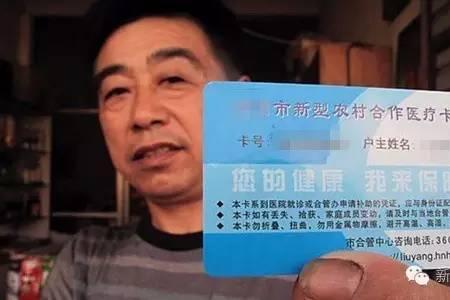 市新型农村合作医疗卡
卡号: 户主姓名:
您的健康 我来保
◆ 本卡系到医院就诊或合管办申请补助的凭证,应与身份证配
◆ 本卡如有丢失、拾获、家庭成员变动,请及时与当地合管
◆ 本卡勿折叠、扭曲,勿用金属物摩擦,避开高温、高湿、
市合管中心咨询电话:36
liuyang.hnh
新